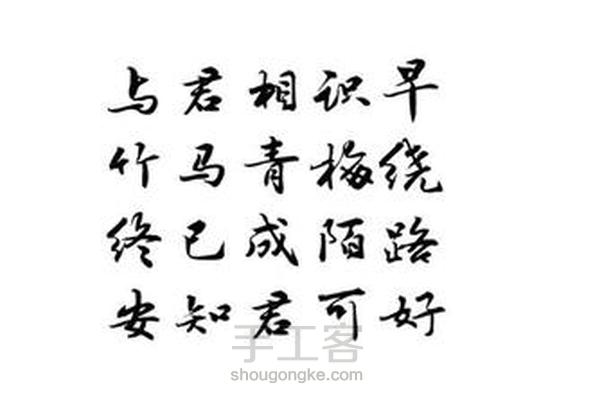 与君相识早
竹马青梅绕
终已成陌路
安知君可好
手工客
shougongke.com